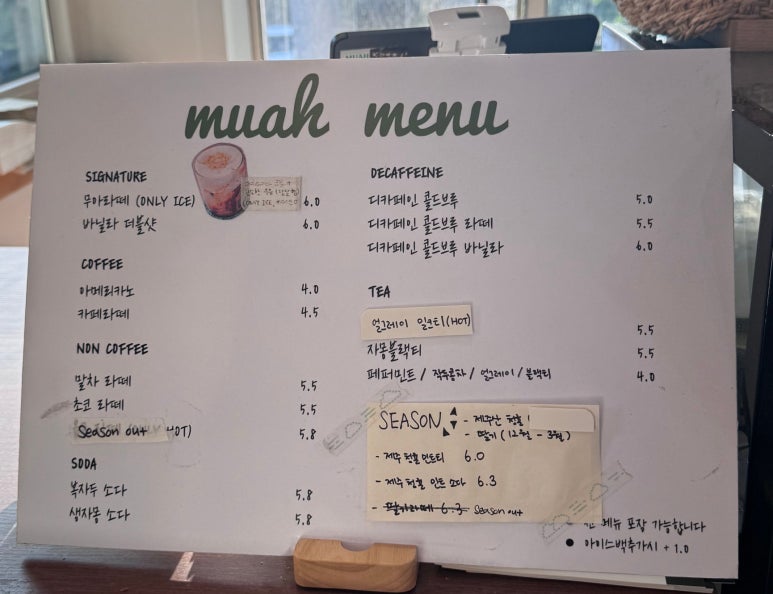 muah menu
SIGNATURE
무아라떼 (ONLY ICE) 6.0
바닐라 더블샷 6.0
COFFEE
아메리카노 4.0
카페라떼 4.5
NON COFFEE
말차 라떼 5.5
초코 라떼 5.5
Season out HOT) 5.8
SODA
복자두 소다 5.8
생자몽 소다 5.8
DECAFFEINE
디카페인 콜드브루 5.0
디카페인 콜드브루 라떼 5.5
디카페인 콜드브루 바닐라 6.0
TEA
얼그레이 밀크티(HOT) 5.5
자몽블랙티 5.5
페퍼민트 / 캐모마일 / 얼그레이 / 블랙티 4.0
SEASON
- 제주산 청귤
- 딸기 (12월 - 3월)
- 제주 청귤 민트티 6.0
- 제주 청귤 민트 소다 6.3
- 딸기라떼 6.3 season out
메뉴 포장 가능합니다
● 아이스백추가시 + 1.0